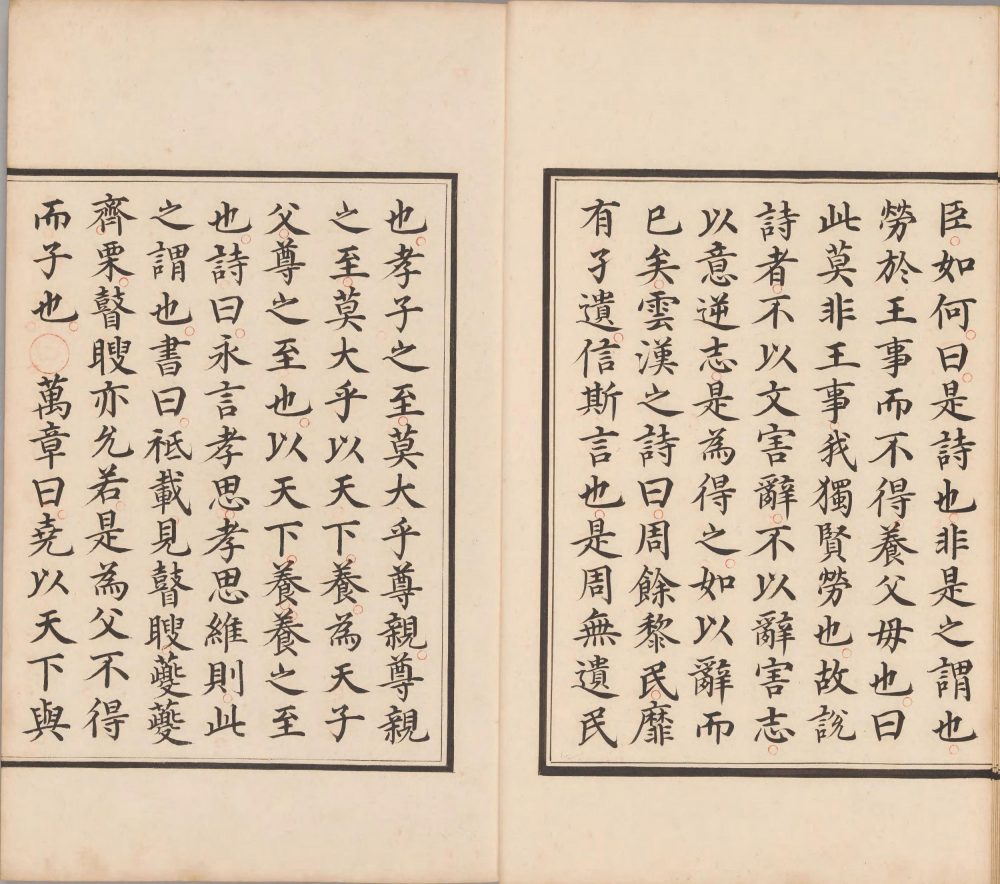 臣如何曰是詩也非是之謂也
勞於王事而不得養父毋也曰
此莫非王事我獨賢勞也故說
詩者不以文害辭不以辭害志
以意逆志是為得之如以辭而
已矣雲漢之詩曰周餘黎民靡
有孑遺信斯言也是周無遺民
也孝子之至莫大乎尊親尊親
之至莫大乎以天下養為天子
父尊之至也以天下養養之至
也詩曰永言孝思孝思維則此
之謂也書曰祗載見瞽瞍夔夔
齊栗瞽瞍亦允若是為父不得
而子也○萬章曰堯以天下與